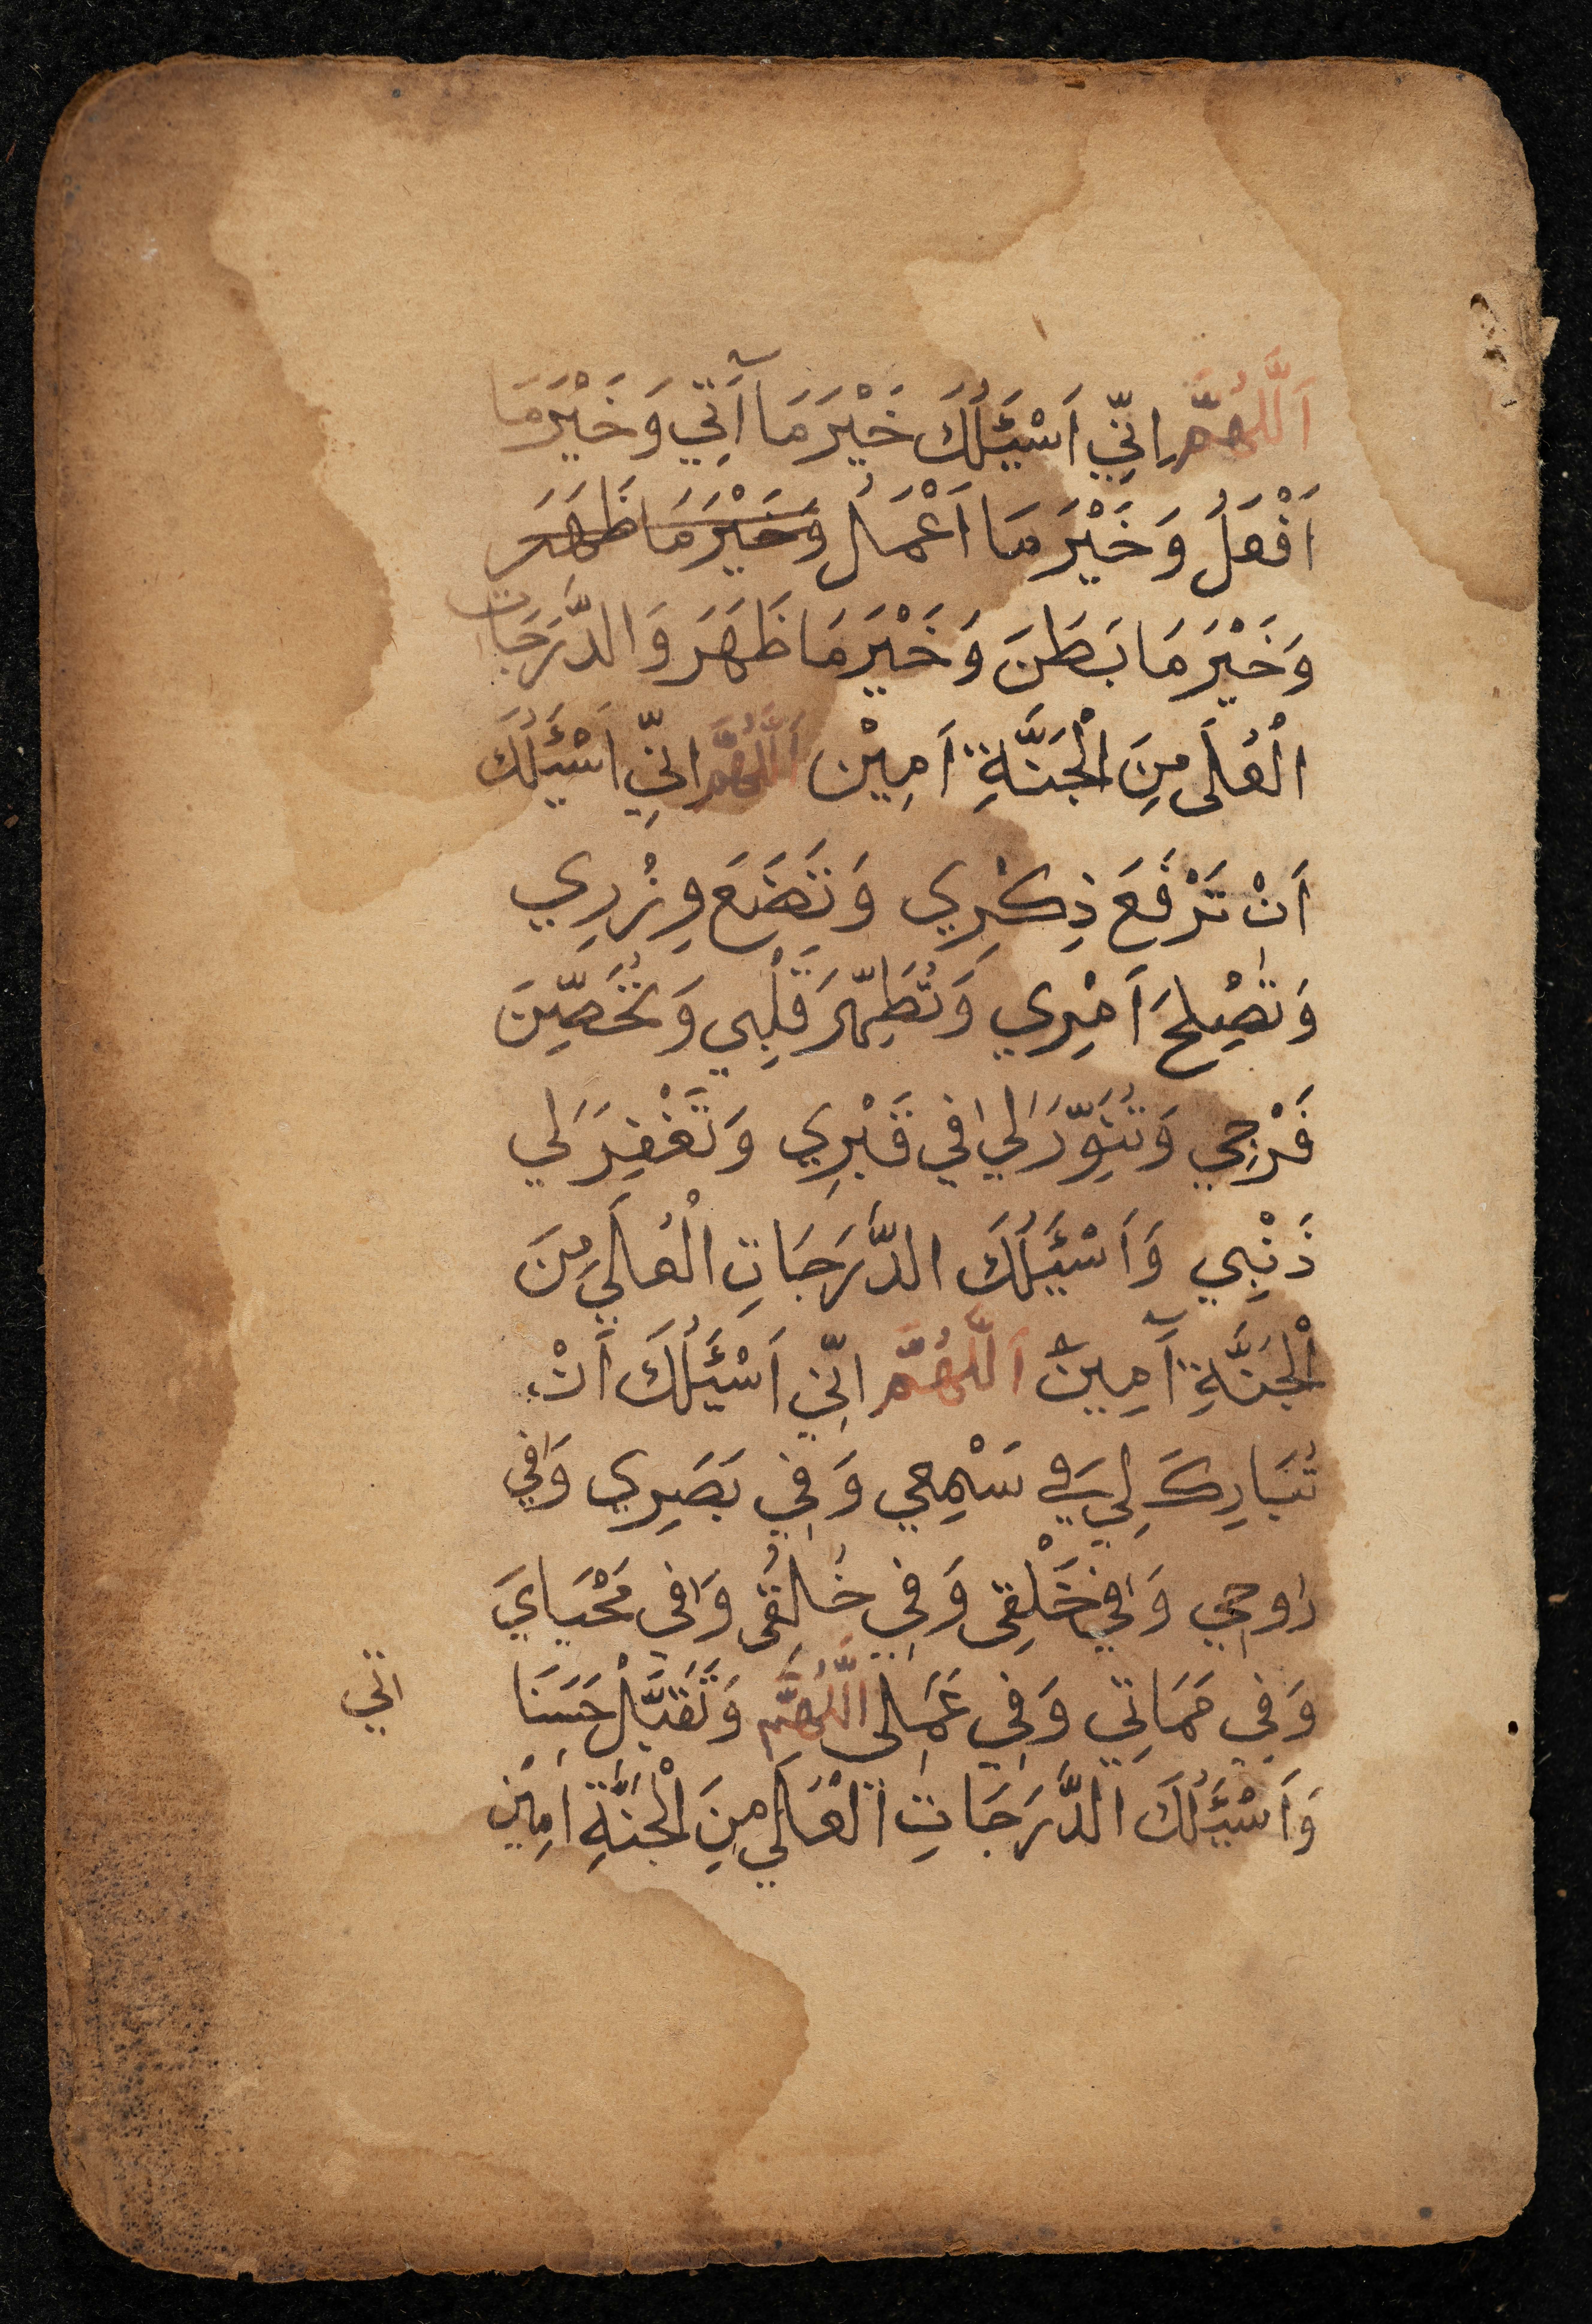 اَللّٰهُمَّ اِنِّي اَسْئَلُكَ خَيْرَ مَا آَتِي وَخَيْرَ مَا
اَفْعَلُ وَخَيْرَ مَا اَعْمَلُ وَخَيْرَ مَا ظَهَرَ
وَخَيْرَ مَا بَطَنَ وَخَيْرَ مَا ظَهَرَ وَالدَّرَجَات
الْعُلَى مِنَ الْجَنَّةِ اَمِيْن اَللّٰهُمَّ اِنِّي اَسْئَلُكَ
اَنْ تَرْفَعَ ذِكْرِي وَتَضَعَ وِزْرِي
وَتُصْلِحَ اَمْرِي وَتُطَهِّرَ قَلْبِي وَتُحَصِّنَ
فَرْجِي وَتُنَوِّرَ لِي فِي قَبْرِي وَتَغْفِرَ لِي
ذَنْبِي وَاَسْئَلُكَ الدَّرَجَاتِ الْعُلَي مِنَ
الْجَنَّةِ آَمِينْ اَللّٰهُمَّ اِنِّي اَسْئَلُكَ اَنْ
تُبَارِكَ لِي فِي سَمْعِي وَفِي بَصَرِي وَفِي
رُوحِي وَفِي خَلْقِى وَفِي خُلُقِى وَفِي مَحْيَايَ
وَفِي مَمَاتِي وَفِي عَمَلِي اللّٰهُمَّ وَتَقَبَّلْ حَسَنَا
اتي
وَاَسْئَلُكَ الدَّرَجَاتِ الْعُلَي مِنَ الْجَنَّةِ اَمِيْن